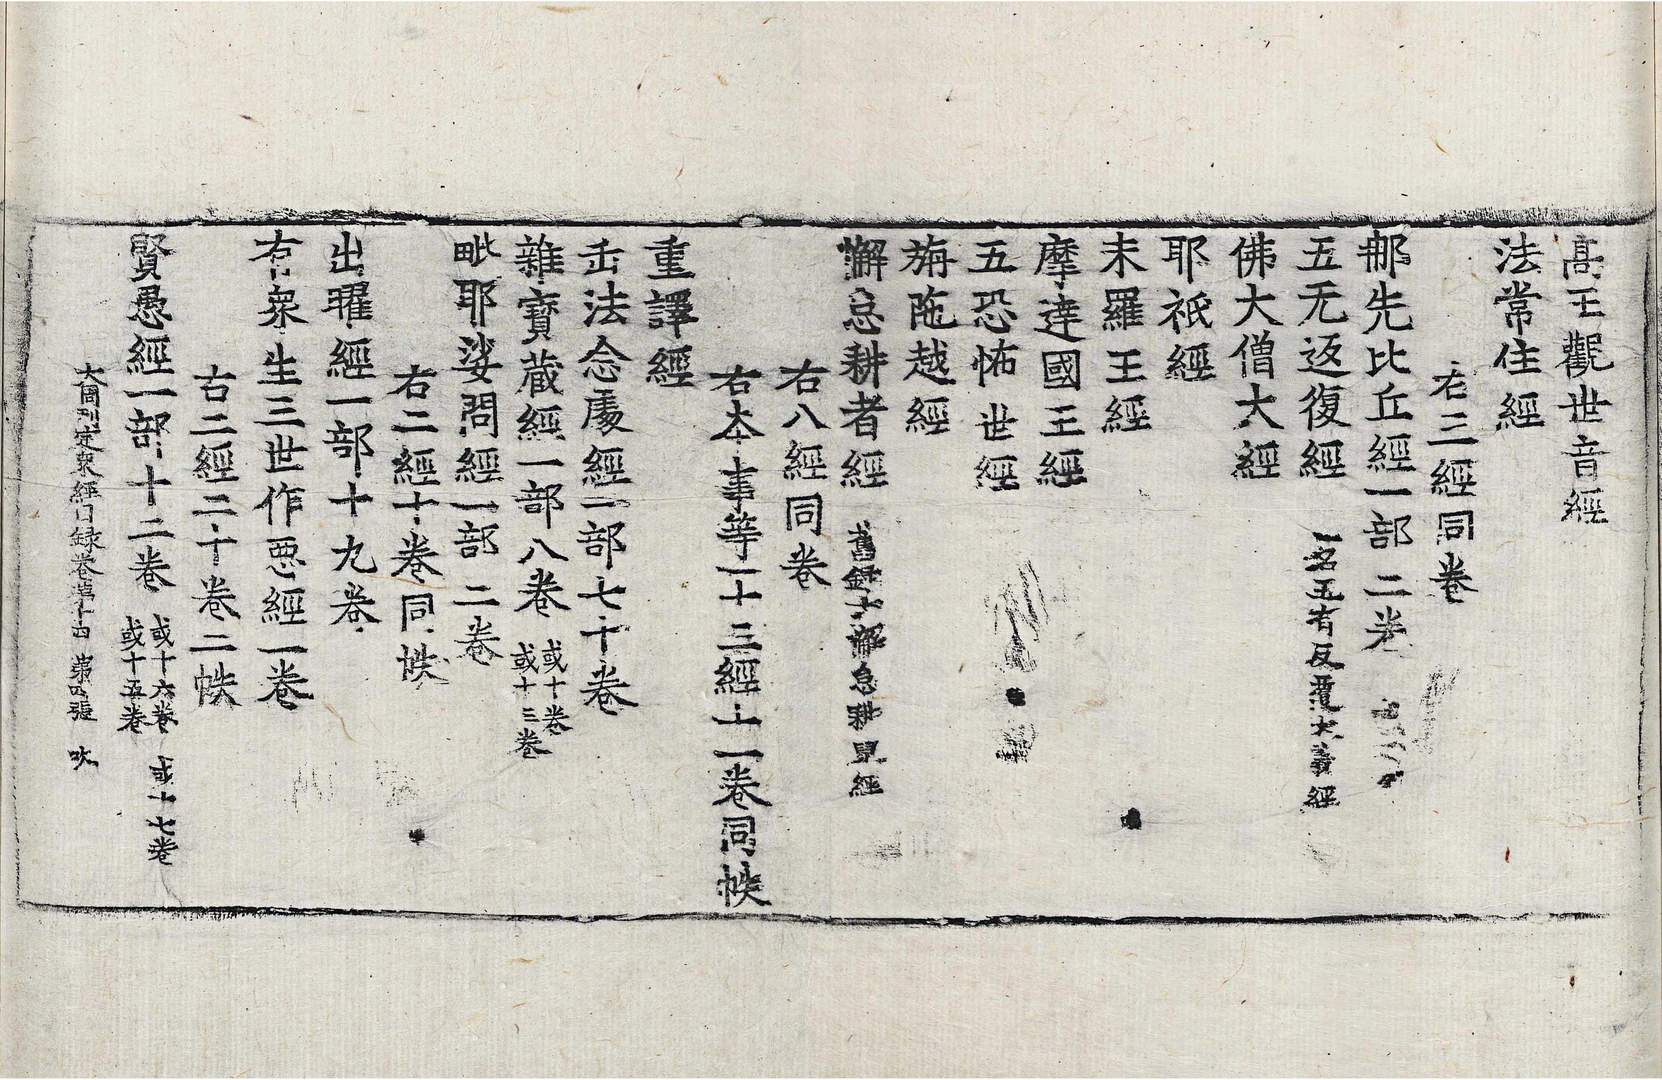 高王觀世音經
法常住經
右三經同卷
那先比丘經一部二卷
五无返復經 一名五有反覆大義經
佛大僧大經
耶祇經
末羅王經
摩達國王經
五恐怖世經
旃陁越經
懈怠耕者經 舊錄云懈怠耕兒經
右八經同卷
右本事等二十三經十一卷同帙
重譯經
正法念處經一部七十卷
雜寶藏經一部八卷 或十卷 或十三卷
毗耶娑問經一部二卷
右二經十卷同帙
出曜經一部十九卷
有衆生三世作惡經一卷
右二經二十卷二帙
賢愚經一部十二卷 或十六卷 或十七卷 或十五卷
大周刊定衆經目録卷第十四 第四張 吹